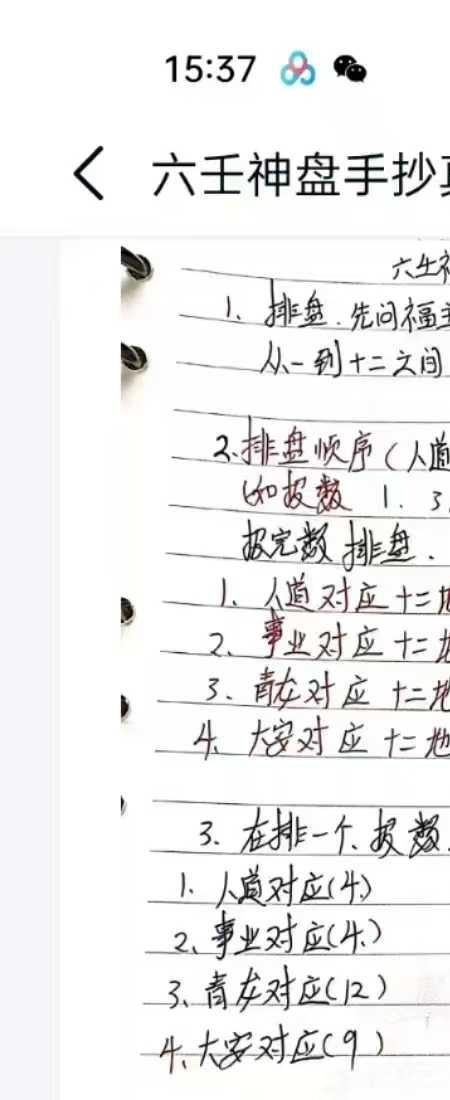 15:37
六壬神盘手抄
六壬
1. 排盘.先问福主
从一到十二之间
2.排盘顺序(人道
(如报数 1. 3.
报完数排盘.
1、人道对应十二地
2、事业对应十二地
3、青龙对应 十二地
4、大安对应十二地
3. 在排一个、报数
1. 人道对应(4.)
2、事业对应(4.)
3、青龙对应(12)
4、大安对应(9)